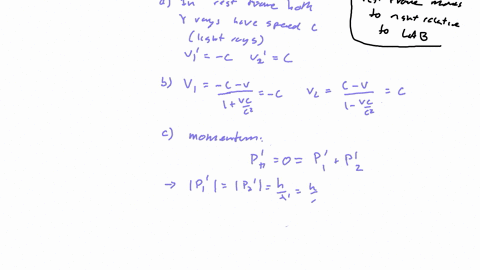 a) In rest frame both
γ rays have speed c
(light rays)
v₁' = -c v₂' = c
rest frame moves
to right relative
to LAB
b) V₁ = (-c-v)/(1+vc/c²) = -c V₂ = (c-v)/(1-vc/c²) = c
c) momentum:
P'π = 0 = P₁' + P₂'
→ |P₁'| = |P₂'| = h/λ' = h/